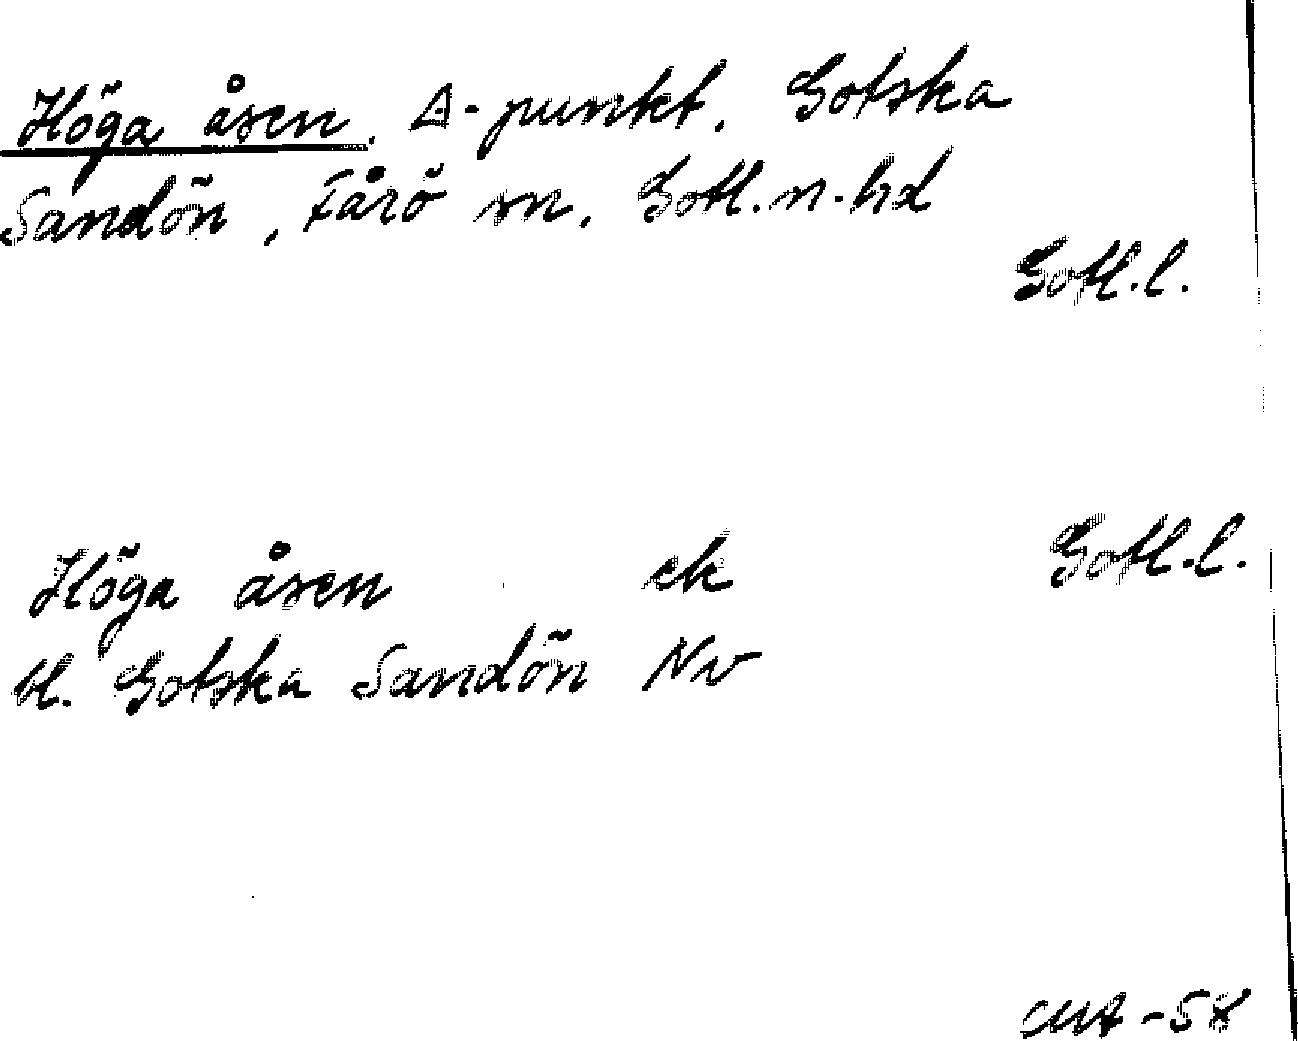 Höga åsen, Δ-punkt, Gotska
Sandön, Fårö sn, Gotl.n.hd
Gotl.l.
Höga åsen ek Gotl.l.
bl. Gotska Sandön Nv
-58